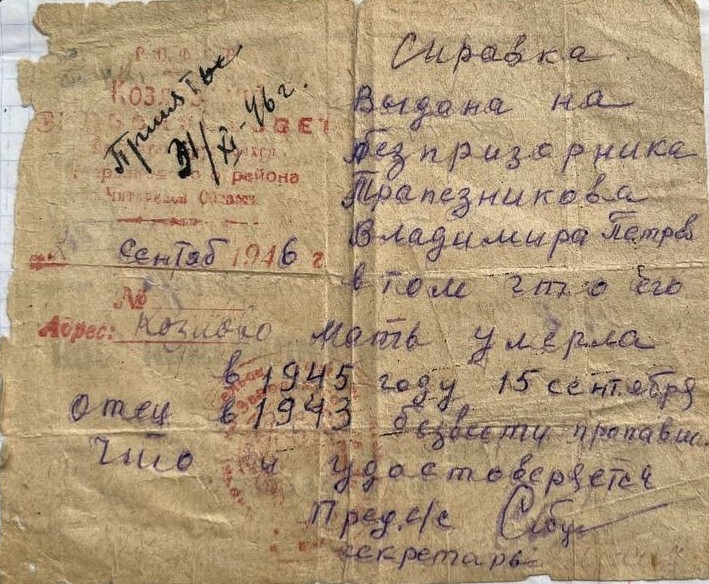 Р.С.Ф.С.Р.
района
Читинской Области
Сентяб 1946 г.
№
Адрес: Козлово
Принять
XI-46 г.
Справка
Выдана на
безпризорника
Трапезникова
Владимира Петров
в том что его
мать умерла
в 1945 году 15 сентября
отец в 1943 безвести пропавш.
Что и удостоверяется
Пред. с/с
секретарь